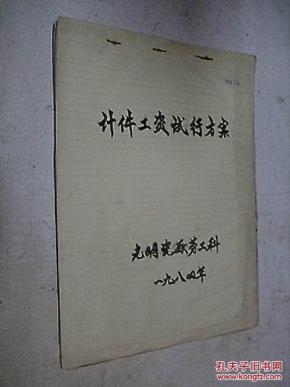 计件工资试行方案
光明瓷厂劳工科
一九八四年
孔夫子旧书网